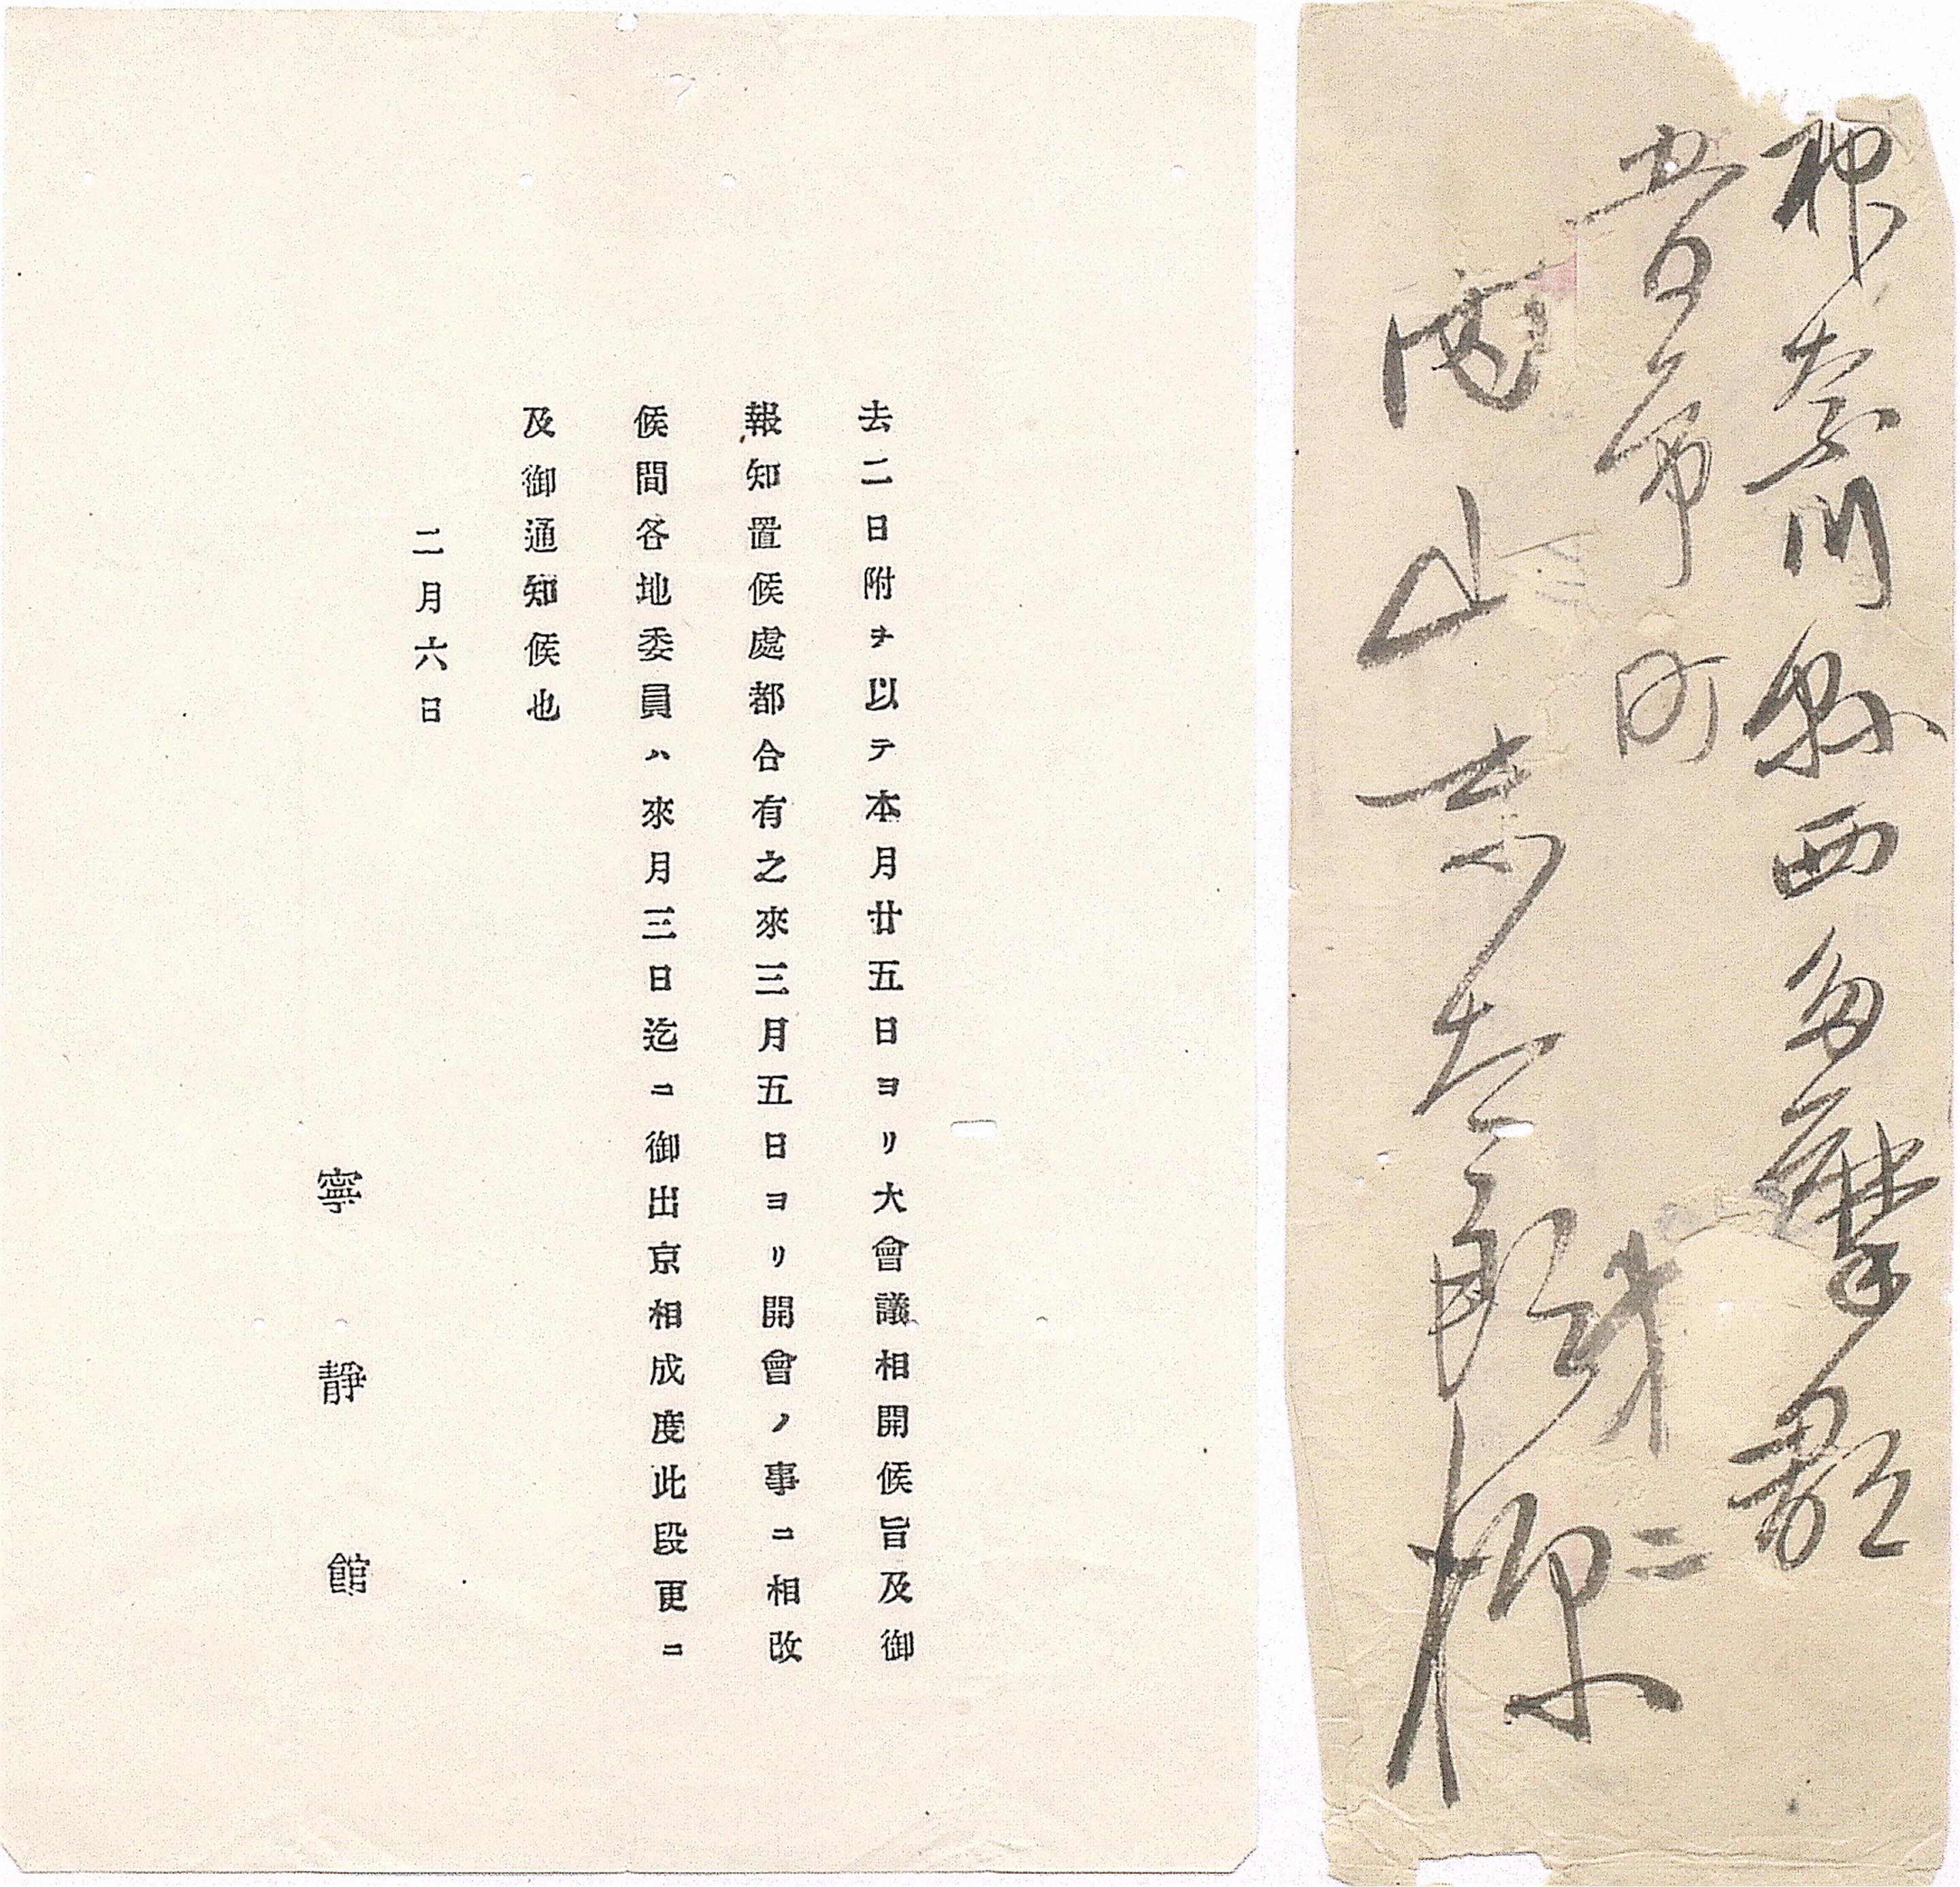 神奈川縣西多摩郡
五日市町
内山太郎様
去二日附ヲ以テ本月廿五日ヨリ大會議相開候旨及御
報知置候處都合有之來三月五日ヨリ開會ノ事ニ相改
候間各地委員ハ來月三日迄ニ御出京相成度此段更ニ
及御通知候也
二月六日
寧靜館